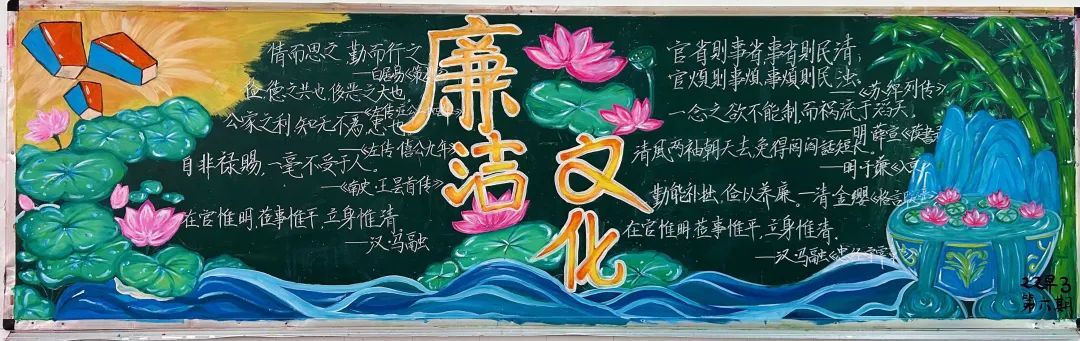 廉洁
文化
情而思之 勤而行之
——白居易《策林》
俭,德之共也,侈,恶之大也
公家之利,知无不为,忠也
——《左传·僖公九年》
自非禄赐,一毫不受于人。
——《南史·王昙首传》
在官惟明,莅事惟平,立身惟清
——汉·马融
官省则事省,事省则民清;
官烦则事烦,事烦则民浊
——《苏绰列传》
一念之欲不能制,而祸流于滔天
——明·薛宣《
清风两袖朝天去,免得闾阎话短长
——明·于谦《入京》
勤能补拙,俭以养廉,一清金缨《格言联璧》
在官惟明,莅事惟平,立身惟清.
——汉·马融《忠经
第六期